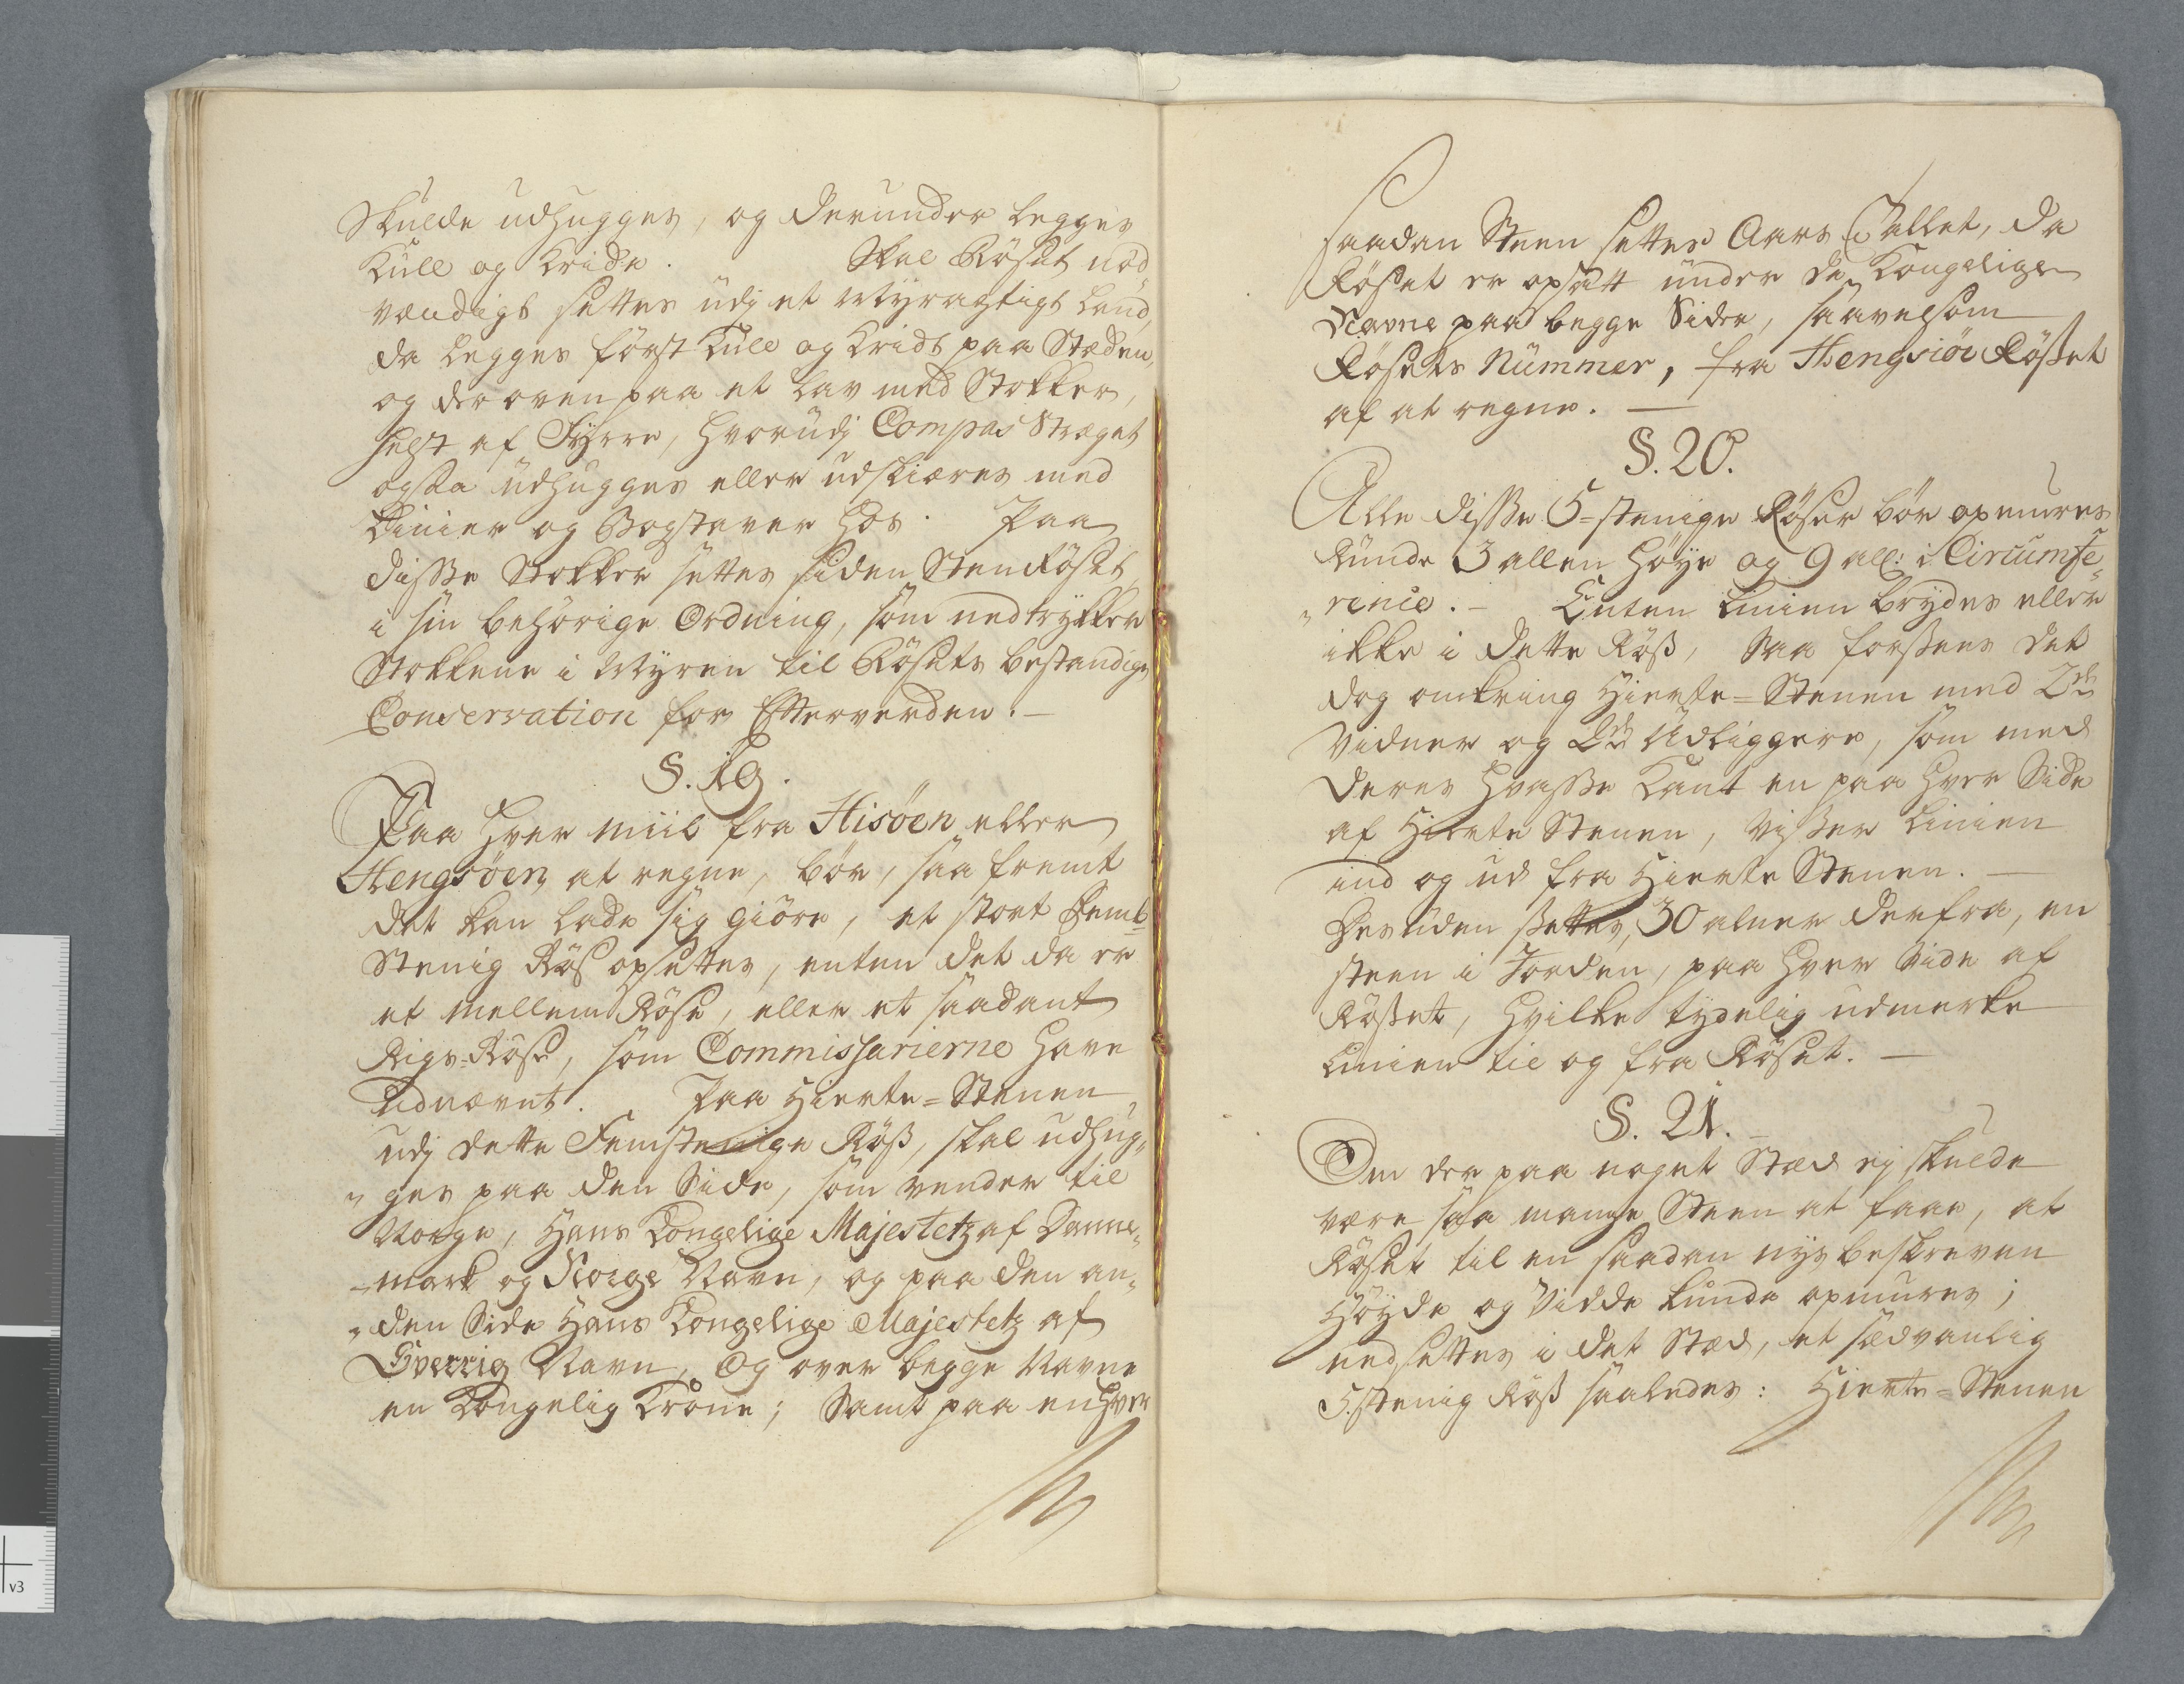 Skulde udhugges, og derunder legges
Kull og Kride. Skal Röset nöd
vendigt settes udj et Myragtigt Land,
da legges först Kull og Kridt paa Stæden,
og der oven paa et Lav med Stokker,
helst af Fyrre, hvorudj Compas Stræget
ogsaa udhugges eller udskiæres med
Linier og Bogstaver hos. Paa
disse Stokker settes siden Sten Röset,
i sin behörige Ordning, som nedtrykker
Stokkene i Myren til Rösets bestandige
Conservation for Efterverden. –
§. 19.
Paa hver miil fra Hisöen eller
Hengsöen at regne, bör, saa fremt
det kan lade sig giöre, et stort Fem-
Stenig Rös opsettes, enten det da er
et mellem Röse, eller et saadant
Rigs-Röse, som Commissarierne have
udnævnt. Paa Hierte-Stenen
udj dette Femstenige Röß, skal udhug„
„ges paa den Side, som vender til
Norge, Hans Kongelige Majestetz af Danne„
„mark og Norge Navn, og paa den an„
„den Side Hans Kongelige Majestetz af
Sverrig Navn, Og over begge Navne
en Kongelig Krone; Samt paa enhver
saadan Steen settes Aars Tallet, da
Röset er opsatt under de Kongelige
Navne paa begge Sider, saavelsom
Rösets Nummer, fra Hengsiöe Rößet
af at regne. —
§. 20.
Alle disse 5-stenige Röser bör opmures
Runde 3 allen höye og 9 all: i Circumfe„
„rence. – Enten Linien brydes eller
ikke i dette Röß, Saa forsees det
dog omkring Hierte-Stenen med 2de
Vidner og 2de Udliggere, som med
deres hvasse Kant en paa hver Side
af Hierte Stenen, Viser Linien
ind og ud fra Hierte Stenen. —
Desuden settes, 30 alner derfra, en
steen i Jorden, paa hver Side af
Rößet, hvilke tydelig udmerke
Linien til og fra Röset. —
§. 21.
Om der paa noget Stæd ej skulde
være saa mange Steen at faae, at
Röset til en saadan nys beskreven
Höyde og Vidde kunde opmures;
nedsettes i det Stæd, et sædvanlig
5.stenig Röß saaledes: Hierte-Stenen